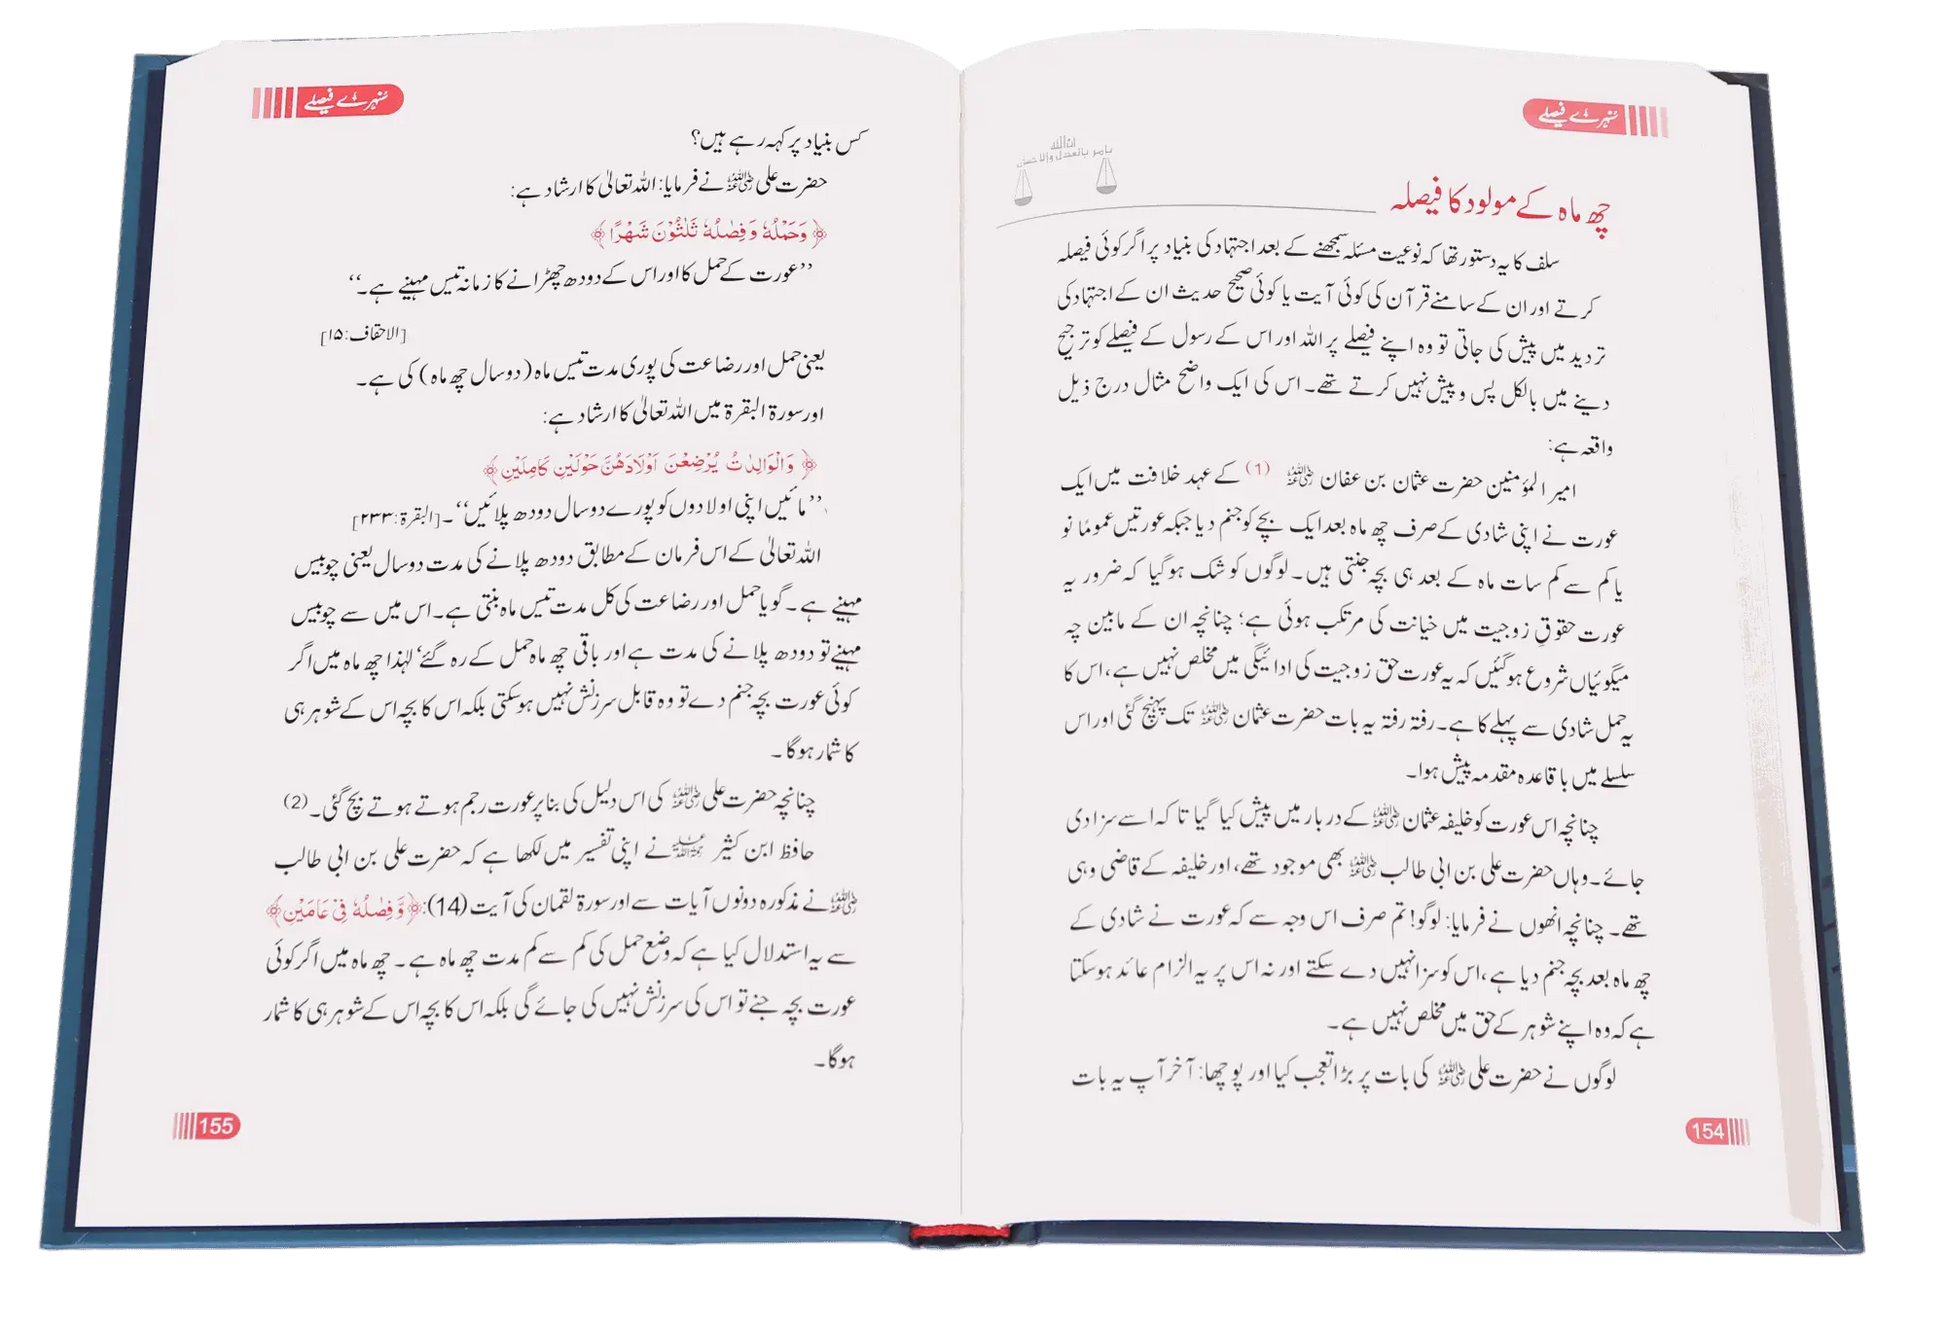 سنہرے فیصلے
ان اللہ
یامر بالعدل والاحسان
چھ ماہ کے مولود کا فیصلہ
سلف کا یہ دستور تھا کہ نوعیت مسئلہ سمجھنے کے بعد اجتہاد کی بنیاد پر اگر کوئی فیصلہ
کرتے اور ان کے سامنے قرآن کی کوئی آیت یا کوئی صحیح حدیث ان کے اجتہاد کی
تردید میں پیش کی جاتی تو وہ اپنے فیصلے پر اللہ اور اس کے رسول کے فیصلے کو ترجیح
دینے میں بالکل پس و پیش نہیں کرتے تھے۔ اس کی ایک واضح مثال درج ذیل
واقعہ ہے:
امیر المؤمنین حضرت عثمان بن عفان رضی اللہ عنہ (1) کے عہد خلافت میں ایک
عورت نے اپنی شادی کے صرف چھ ماہ بعد ایک بچے کو جنم دیا جبکہ عورتیں عموماً نو
یا کم سے کم سات ماہ کے بعد ہی بچہ جنتی ہیں۔ لوگوں کو شک ہوگیا کہ ضرور یہ
عورت حقوقِ زوجیت میں خیانت کی مرتکب ہوئی ہے؛ چنانچہ ان کے مابین چہ
میگوئیاں شروع ہوگئیں کہ یہ عورت حق زوجیت کی ادائیگی میں مخلص نہیں ہے، اس کا
یہ حمل شادی سے پہلے کا ہے۔ رفتہ رفتہ یہ بات حضرت عثمان رضی اللہ عنہ تک پہنچ گئی اور اس
سلسلے میں باقاعدہ مقدمہ پیش ہوا۔
چنانچہ اس عورت کو خلیفہ عثمان رضی اللہ عنہ کے دربار میں پیش کیا گیا تاکہ اسے سزا دی
جائے۔ وہاں حضرت علی بن ابی طالب رضی اللہ عنہ بھی موجود تھے، اور خلیفہ کے قاضی وہی
تھے۔ چنانچہ انھوں نے فرمایا: لوگو! تم صرف اس وجہ سے کہ عورت نے شادی کے
چھ ماہ بعد بچہ جنم دیا ہے، اس کو سزا نہیں دے سکتے اور نہ اس پر یہ الزام عائد ہوسکتا
ہے کہ وہ اپنے شوہر کے حق میں مخلص نہیں ہے۔
لوگوں نے حضرت علی رضی اللہ عنہ کی بات پر بڑا تعجب کیا اور پوچھا: آخر آپ یہ بات
154
سنہرے فیصلے
کس بنیاد پر کہہ رہے ہیں؟
حضرت علی رضی اللہ عنہ نے فرمایا: اللہ تعالیٰ کا ارشاد ہے:
﴿ وَحَمْلُهٗ وَفِصٰلُهٗ ثَلٰثُوْنَ شَهْرًا ﴾
’’عورت کے حمل کا اور اس کے دودھ چھڑانے کا زمانہ تیس مہینے ہے۔‘‘
[الاحقاف:۱۵]
یعنی حمل اور رضاعت کی پوری مدت تیس ماہ (دو سال چھ ماہ) کی ہے۔
اور سورۃ البقرۃ میں اللہ تعالیٰ کا ارشاد ہے:
﴿ وَالْوَالِدٰتُ يُرْضِعْنَ اَوْلَادَهُنَّ حَوْلَيْنِ كَامِلَيْنِ ﴾
’’مائیں اپنی اولادوں کو پورے دو سال دودھ پلائیں‘‘۔ [البقرۃ:۲۳۳]
اللہ تعالیٰ کے اس فرمان کے مطابق دودھ پلانے کی مدت دو سال یعنی چوبیس
مہینے ہے۔ گویا حمل اور رضاعت کی کل مدت تیس ماہ بنتی ہے۔ اس میں سے چوبیس
مہینے تو دودھ پلانے کی مدت ہے اور باقی چھ ماہ حمل کے رہ گئے‘ لہٰذا چھ ماہ میں اگر
کوئی عورت بچہ جنم دے تو وہ قابل سرزنش نہیں ہوسکتی بلکہ اس کا بچہ اس کے شوہر ہی
کا شمار ہوگا۔
چنانچہ حضرت علی رضی اللہ عنہ کی اس دلیل کی بنا پر عورت رجم ہوتے ہوتے بچ گئی۔ (2)
حافظ ابن کثیر رحمۃ اللہ علیہ نے اپنی تفسیر میں لکھا ہے کہ حضرت علی بن ابی طالب
رضی اللہ عنہ نے مذکورہ دونوں آیات سے اور سورۃ لقمان کی آیت (14): ﴿وَّفِصٰلُهٗ فِيْ عَامَيْنِ﴾
سے یہ استدلال کیا ہے کہ وضع حمل کی کم سے کم مدت چھ ماہ ہے۔ چھ ماہ میں اگر کوئی
عورت بچہ جنے تو اس کی سرزنش نہیں کی جائے گی بلکہ اس کا بچہ اس کے شوہر ہی کا شمار
ہوگا۔
155